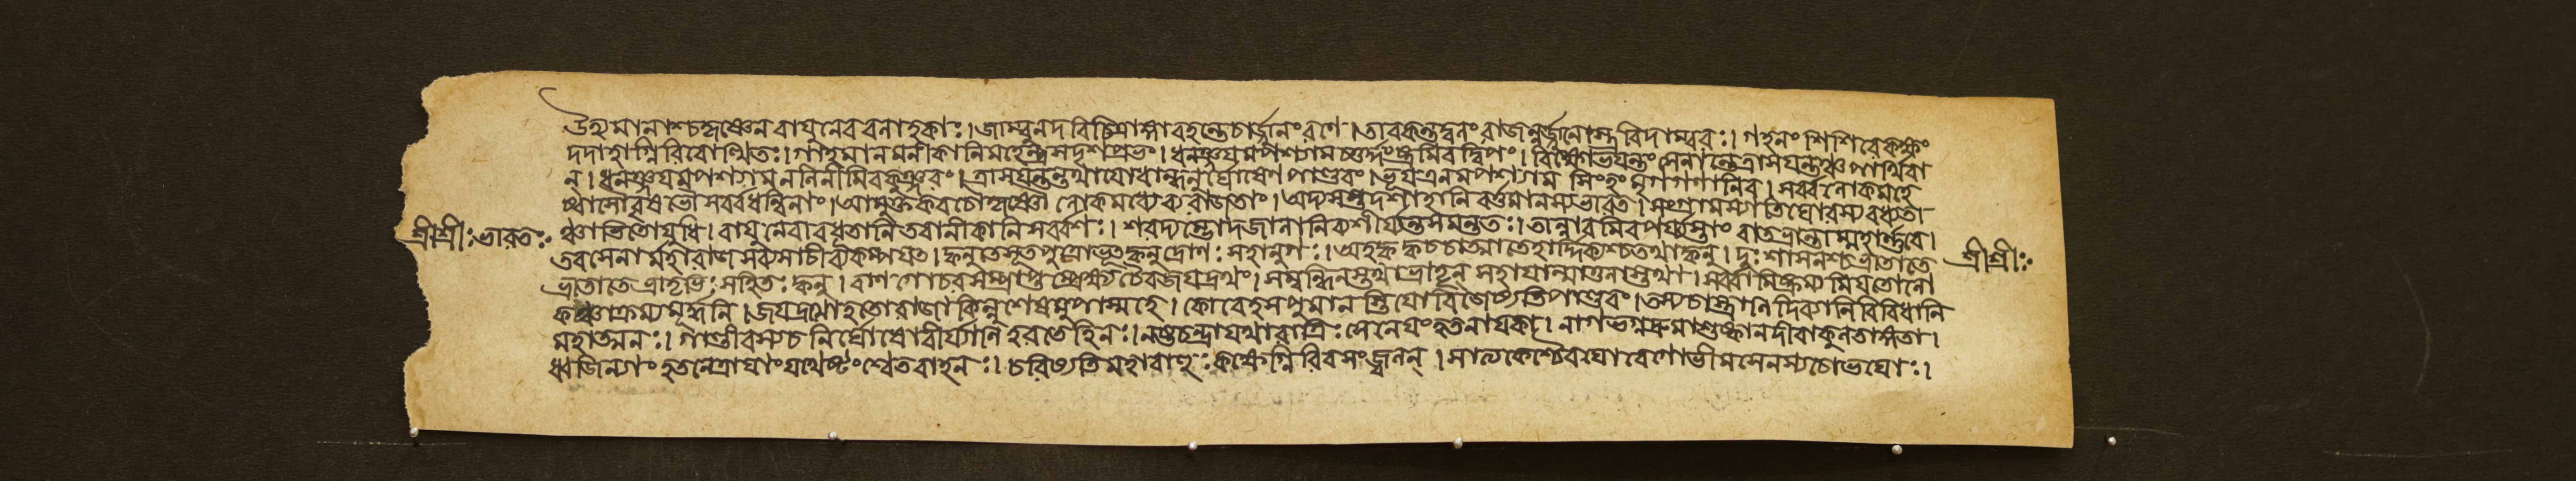 ঊহ্যমানাশ্চকৃষ্ণেন বায়ুনেববলাহকাঃ। জাম্বূনদবিচিত্রাঙ্গাবহন্তেচার্জ্জুনংরণে। তাবকন্তদ্বলংরাজন্নর্জ্জুনোস্ত্রবিদাম্বরঃ। গহনংশিশিরেকক্ষং
দদাহাগ্নিরিবোত্থিতঃ। গাহমানমনীকানিমহেন্দ্রসদৃশপ্রভং। ধনঞ্জয়মপশ্যামচতুর্দ্দংষ্ট্রমিবদ্বিপং। বিক্ষোভয়ন্তংসেনান্তেত্রাসয়ন্তঞ্চপার্থিবা
ন্। ধনঞ্জয়মপশ্যামনলিনীমিবকুঞ্জরং। ত্রাসয়ন্তন্তথাযোধান্ধনুর্ঘোষেণপাণ্ডবং। ভূয়এনমপশ্যাম সিংহংমৃগগণানিব। সর্ব্বলোকমহে
ষ্বাসৌবৃষভৌসর্ব্বধন্বিনাং। আমুক্তকবচৌকৃষ্ণৌ লোকমধ্যেব্যরাজতাং। অদ্যসপ্তদশাহানি বর্ত্তমানস্যভারত। সংগ্রামস্যাতিঘোরস্য বধ্যতা
ঞ্চাভিতোযুধি। বায়ুনেবাবধূতানিতবানীকানিসর্ব্বশঃ। শরদ্যম্ভোদজালানিব্যশীর্য্যন্তসমন্ততঃ। তান্নাবমিবপর্য্যস্তাং বাতভ্রান্তাম্মহার্ণ্ণবে।
শ্রীশ্রীঃভারতঃ
শ্রীশ্রীঃ
তবসেনাম্মহারাজসব্যসাচীব্যকম্পয়ৎ। ক্বনুতেসূতপুত্রোভূৎক্বনুদ্রোণঃ সহানুগঃ। অহংক্ব ক্বচচাত্মাতেহার্দ্দিক্যশ্চতথাক্বনু। দুঃশাসনশ্চভ্রাতাতে
ভ্রাতাতেভ্রাতৃভিঃ সহিতঃ ক্বনু। বাণগোচরসম্প্রাপ্তম্প্রেক্ষ্যচৈবজয়দ্রথং। সম্বন্ধিনস্তথাভ্রাতৄন্ সহায়ান্মাতুলাস্তথা। সর্ব্বান্বিক্রম্যমিষতোলো
কাঞ্চাক্রম্যমূর্দ্ধনি। জয়দ্রথোহতোরাজা কিন্নুশেষমুপাস্মহে। কোবেহসপুমানস্তিযোবিজেষ্যতিপাণ্ডবং। তস্যচাস্ত্রাণিদিব্যানিবিবিধানি
মহাত্মনঃ। গাণ্ডীবস্যচ নির্ঘোষোবীর্য্যাণি হরতেহিনঃ। নষ্টচন্দ্রাযথারাত্রিঃ সেনেয়ংহতনায়কা। নাগভগ্নদ্রুমাশুষ্কানদীবাকুলতাঙ্গতা।
ধ্বজিন্যাংহতনেত্রায়াংযথেষ্টংশ্বেতবাহনঃ। চরিষ্যতিমহাবাহুঃ কক্ষেগ্নিরিবসংজ্বলন্। সাত্যকেশ্চৈবযোবেগোভীমসেনস্যচোভয়োঃ।